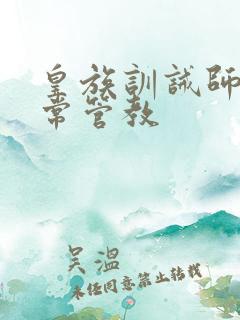 皇族訓誡師
常管教
吴溫
未经同意禁止转载